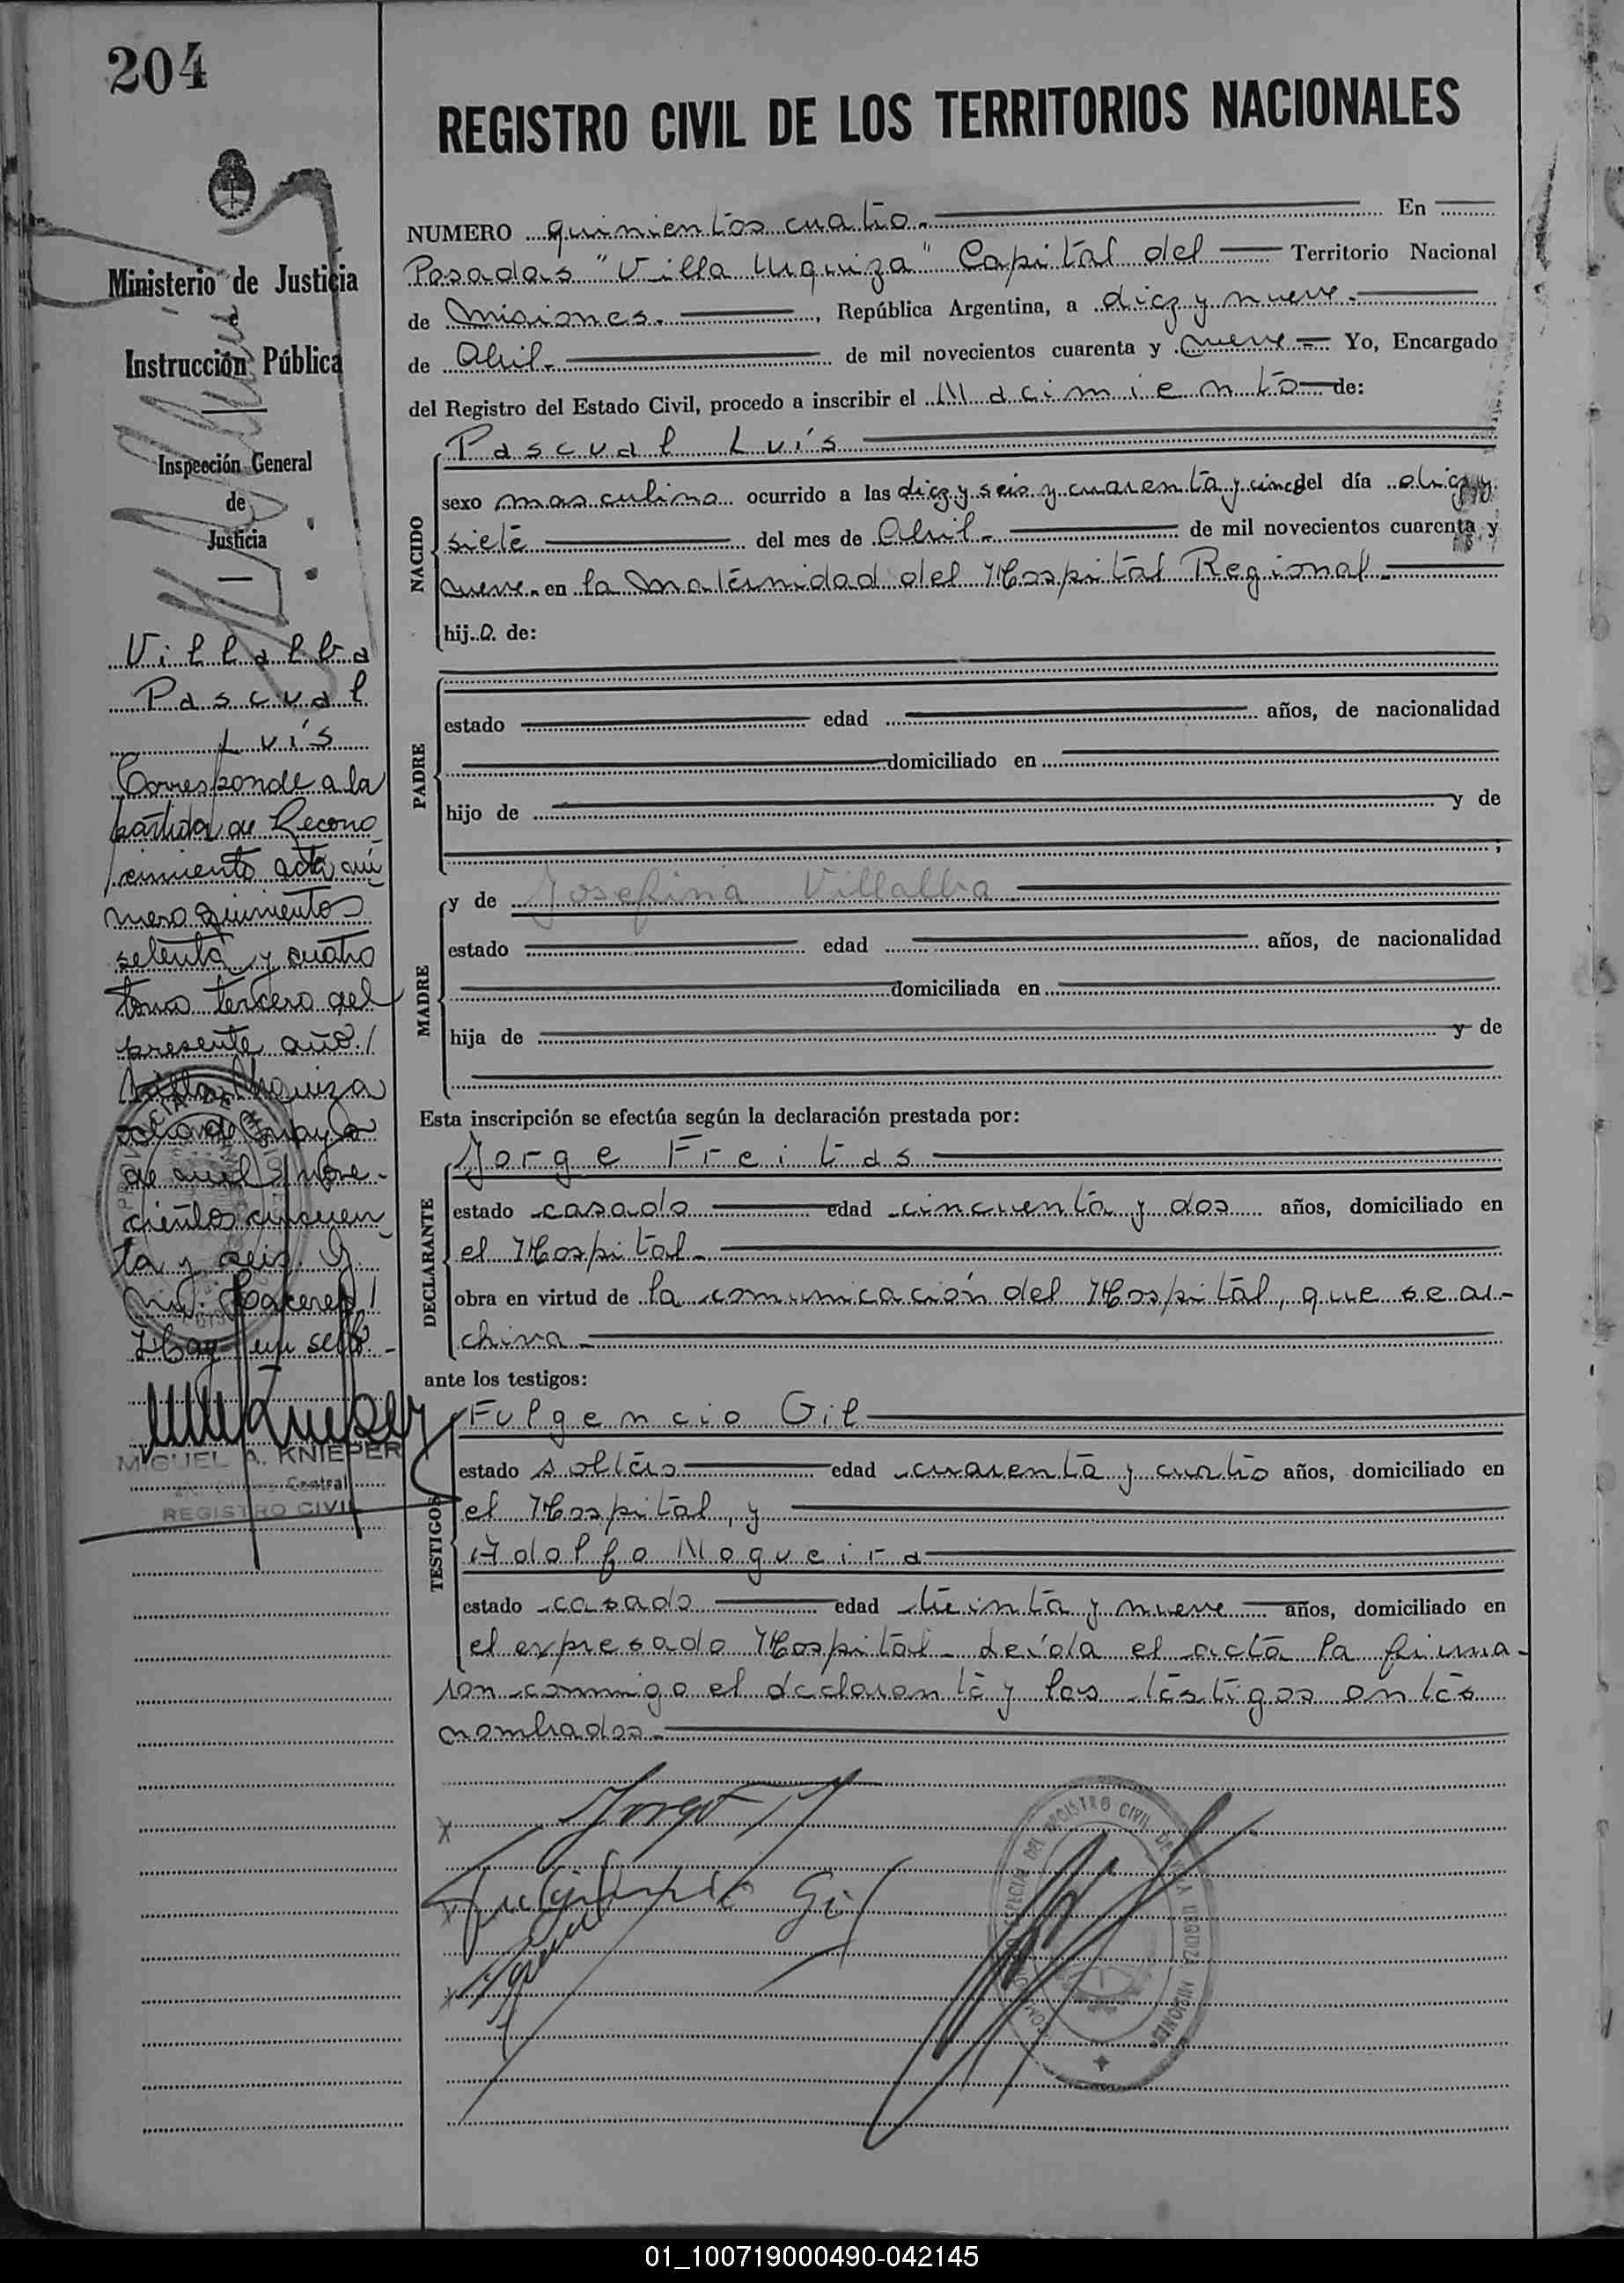 204
REGISTRO CIVIL DE LOS TERRITORIOS NACIONALES
Ministerio de Justicia
Instrucción Pública
Inspección General
de
Justicia
Villalba
Pascual
Luís
Corresponde a la
partida de Recono
cimiento acta nú
mero quinientos
setenta y cuatro
tomo tercero del
presente año./
Villa Urquiza
de mayo
de mil nove-
cientos cincuen
ta y seis.
Hay un sello.-
MIGUEL A. KNIEPER
Central
REGISTRO CIVIL
NUMERO quinientos cuatro.- En
Posadas "Villa Urquiza" Capital del Territorio Nacional
de Misiones.- , República Argentina, a diez y nueve.-
de Abril.- de mil novecientos cuarenta y nueve.- Yo, Encargado
del Registro del Estado Civil, procedo a inscribir el Nacimiento de:
NACIDO
Pascual Luís
sexo masculino ocurrido a las diez y seis y cuarenta y cinco del día diez y
siete del mes de Abril.- de mil novecientos cuarenta y
nueve.- en la Maternidad del Hospital Regional.-
hijo de:
PADRE
estado edad años, de nacionalidad
domiciliado en
hijo de y de
;
MADRE
y de Josefina Villalba
estado edad años, de nacionalidad
domiciliada en
hija de y de
Esta inscripción se efectúa según la declaración prestada por:
DECLARANTE
Jorge Freitas
estado casado edad cincuenta y dos años, domiciliado en
el Hospital.-
obra en virtud de la comunicación del Hospital, que se ar-
chiva.-
ante los testigos:
TESTIGOS
Fulgencio Gil
estado soltero edad cuarenta y cuatro años, domiciliado en
el Hospital, y
Adolfo Nogueira
estado casado edad treinta y nueve años, domiciliado en
el expresado Hospital.- Leída el acta la firma-
ron conmigo el declarante y los testigos antes
nombrados.-
Jorge
Fulgencio Gil
REGISTRO CIVIL DE VILLA URQUIZA MISIONES
01_100719000490-042145